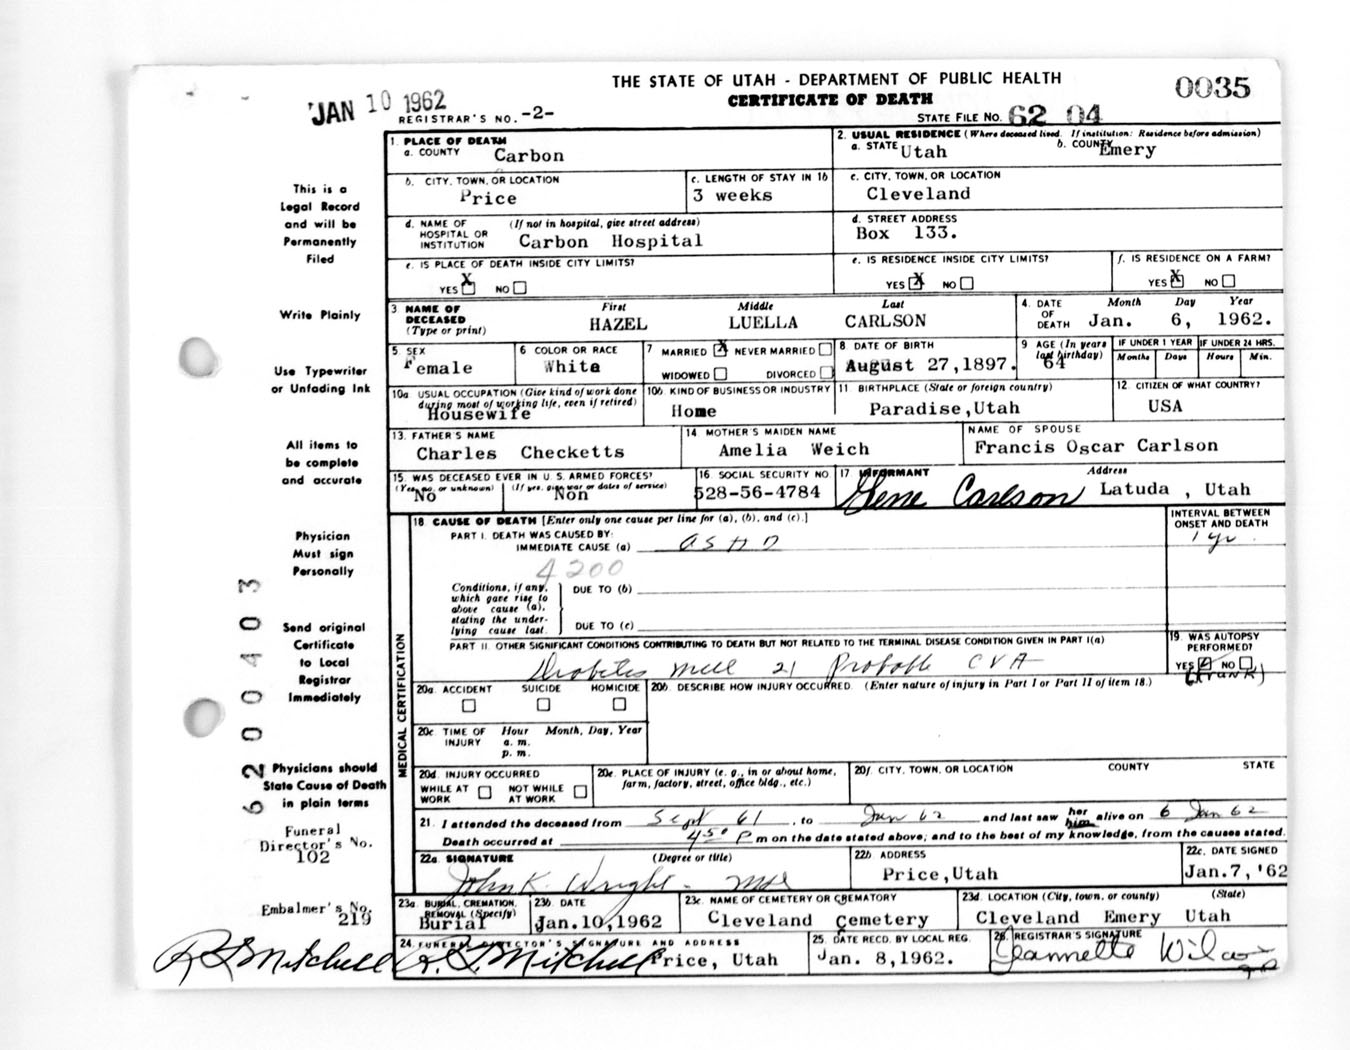 THE STATE OF UTAH - DEPARTMENT OF PUBLIC HEALTH
CERTIFICATE OF DEATH
0035
JAN 10 1962
REGISTRAR'S NO. -2-
STATE FILE NO. 62 04
This is a
Legal Record
and will be
Permanently
Filed
Write Plainly
Use Typewriter
or Unfading Ink
All items to
be complete
and accurate
Physician
Must sign
Personally
Send original
Certificate
to Local
Registrar
Immediately
Physicians should
State Cause of Death
in plain terms
Funeral
Director's No.
102
Embalmer's No.
219
6 2 0 0 4 0 3
1. PLACE OF DEATH
a. COUNTY Carbon
2. USUAL RESIDENCE (Where deceased lived. If institution: Residence before admission)
a. STATE Utah b. COUNTY Emery
b. CITY, TOWN, OR LOCATION
Price
c. LENGTH OF STAY IN 1b
3 weeks
c. CITY, TOWN, OR LOCATION
Cleveland
d. NAME OF HOSPITAL OR INSTITUTION (If not in hospital, give street address)
Carbon Hospital
d. STREET ADDRESS
Box 133.
e. IS PLACE OF DEATH INSIDE CITY LIMITS?
YES X NO
e. IS RESIDENCE INSIDE CITY LIMITS?
YES X NO
f. IS RESIDENCE ON A FARM?
YES X NO
3 NAME OF DECEASED (Type or print)
First Middle Last
HAZEL LUELLA CARLSON
4. DATE OF DEATH Month Day Year
Jan. 6, 1962.
5. SEX
Female
6 COLOR OR RACE
White
7 MARRIED X NEVER MARRIED
WIDOWED DIVORCED
8 DATE OF BIRTH
August 27,1897.
9 AGE (In years last birthday)
64
IF UNDER 1 YEAR
Months Days
IF UNDER 24 HRS.
Hours Min.
10a USUAL OCCUPATION (Give kind of work done during most of working life, even if retired)
Housewife
10b. KIND OF BUSINESS OR INDUSTRY
Home
11 BIRTHPLACE (State or foreign country)
Paradise,Utah
12 CITIZEN OF WHAT COUNTRY?
USA
13. FATHER'S NAME
Charles Checketts
14 MOTHER'S MAIDEN NAME
Amelia Weich
NAME OF SPOUSE
Francis Oscar Carlson
15. WAS DECEASED EVER IN U. S. ARMED FORCES?
(Yes, no, or unknown) (If yes, give war or dates of service)
No Non
16. SOCIAL SECURITY NO
528-56-4784
17 INFORMANT Address
Gene Carlson Latuda , Utah
MEDICAL CERTIFICATION
18 CAUSE OF DEATH [Enter only one cause per line for (a), (b), and (c).]
INTERVAL BETWEEN ONSET AND DEATH
PART I. DEATH WAS CAUSED BY:
IMMEDIATE CAUSE (a) ASHD
1 yr.
4200
Conditions, if any, which gave rise to above cause (a), stating the underlying cause last.
DUE TO (b)
DUE TO (c)
PART II. OTHER SIGNIFICANT CONDITIONS CONTRIBUTING TO DEATH BUT NOT RELATED TO THE TERMINAL DISEASE CONDITION GIVEN IN PART I(a)
Diabetes Mell 21 Probable CVA
19. WAS AUTOPSY PERFORMED?
YES NO
(Trunk)
20a. ACCIDENT SUICIDE HOMICIDE
20b. DESCRIBE HOW INJURY OCCURRED. (Enter nature of injury in Part I or Part II of item 18.)
20c. TIME OF INJURY Hour Month, Day, Year
a. m.
p. m.
20d. INJURY OCCURRED
WHILE AT WORK NOT WHILE AT WORK
20e. PLACE OF INJURY (e. g., in or about home, farm, factory, street, office bldg., etc.)
20f. CITY, TOWN, OR LOCATION COUNTY STATE
21. I attended the deceased from Sept 61, to Jan 62 and last saw her him alive on 6 Jan 62
Death occurred at 4:50 P m on the date stated above; and to the best of my knowledge, from the causes stated.
22a. SIGNATURE (Degree or title)
John K. Wright - MD
22b ADDRESS
Price,Utah
22c. DATE SIGNED
Jan.7,'62
23a. BURIAL, CREMATION, REMOVAL (Specify)
Burial
23b. DATE
Jan.10,1962
23c. NAME OF CEMETERY OR CREMATORY
Cleveland Cemetery
23d. LOCATION (City, town, or county) (State)
Cleveland Emery Utah
24. FUNERAL DIRECTOR'S SIGNATURE AND ADDRESS
R S Mitchell R. S. Mitchell Price, Utah
25. DATE RECD. BY LOCAL REG.
Jan. 8,1962.
26. REGISTRAR'S SIGNATURE
Jeannette Wilcox